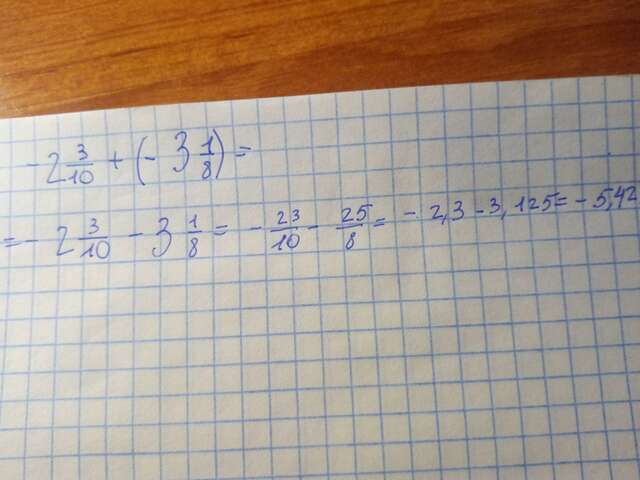 -2 3/10 + (- 3 1/8) =
= - 2 3/10 - 3 1/8 = - 23/10 - 25/8 = - 2,3 - 3,125 = - 5,42